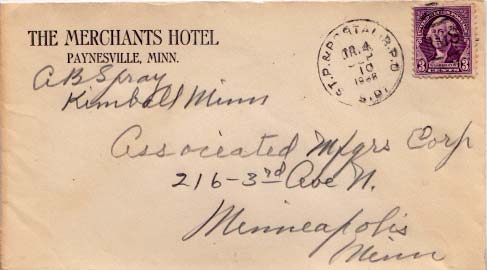 THE MERCHANTS HOTEL
PAYNESVILLE, MINN.
A B Spray
Kimball Minn
ST.P. & PORTAL R.P.O
TR.4
SEP
10
S.D.
3 CENTS 3
Associated Mfgrs Corp
216-3rd Ave N.
Minneapolis
Minn